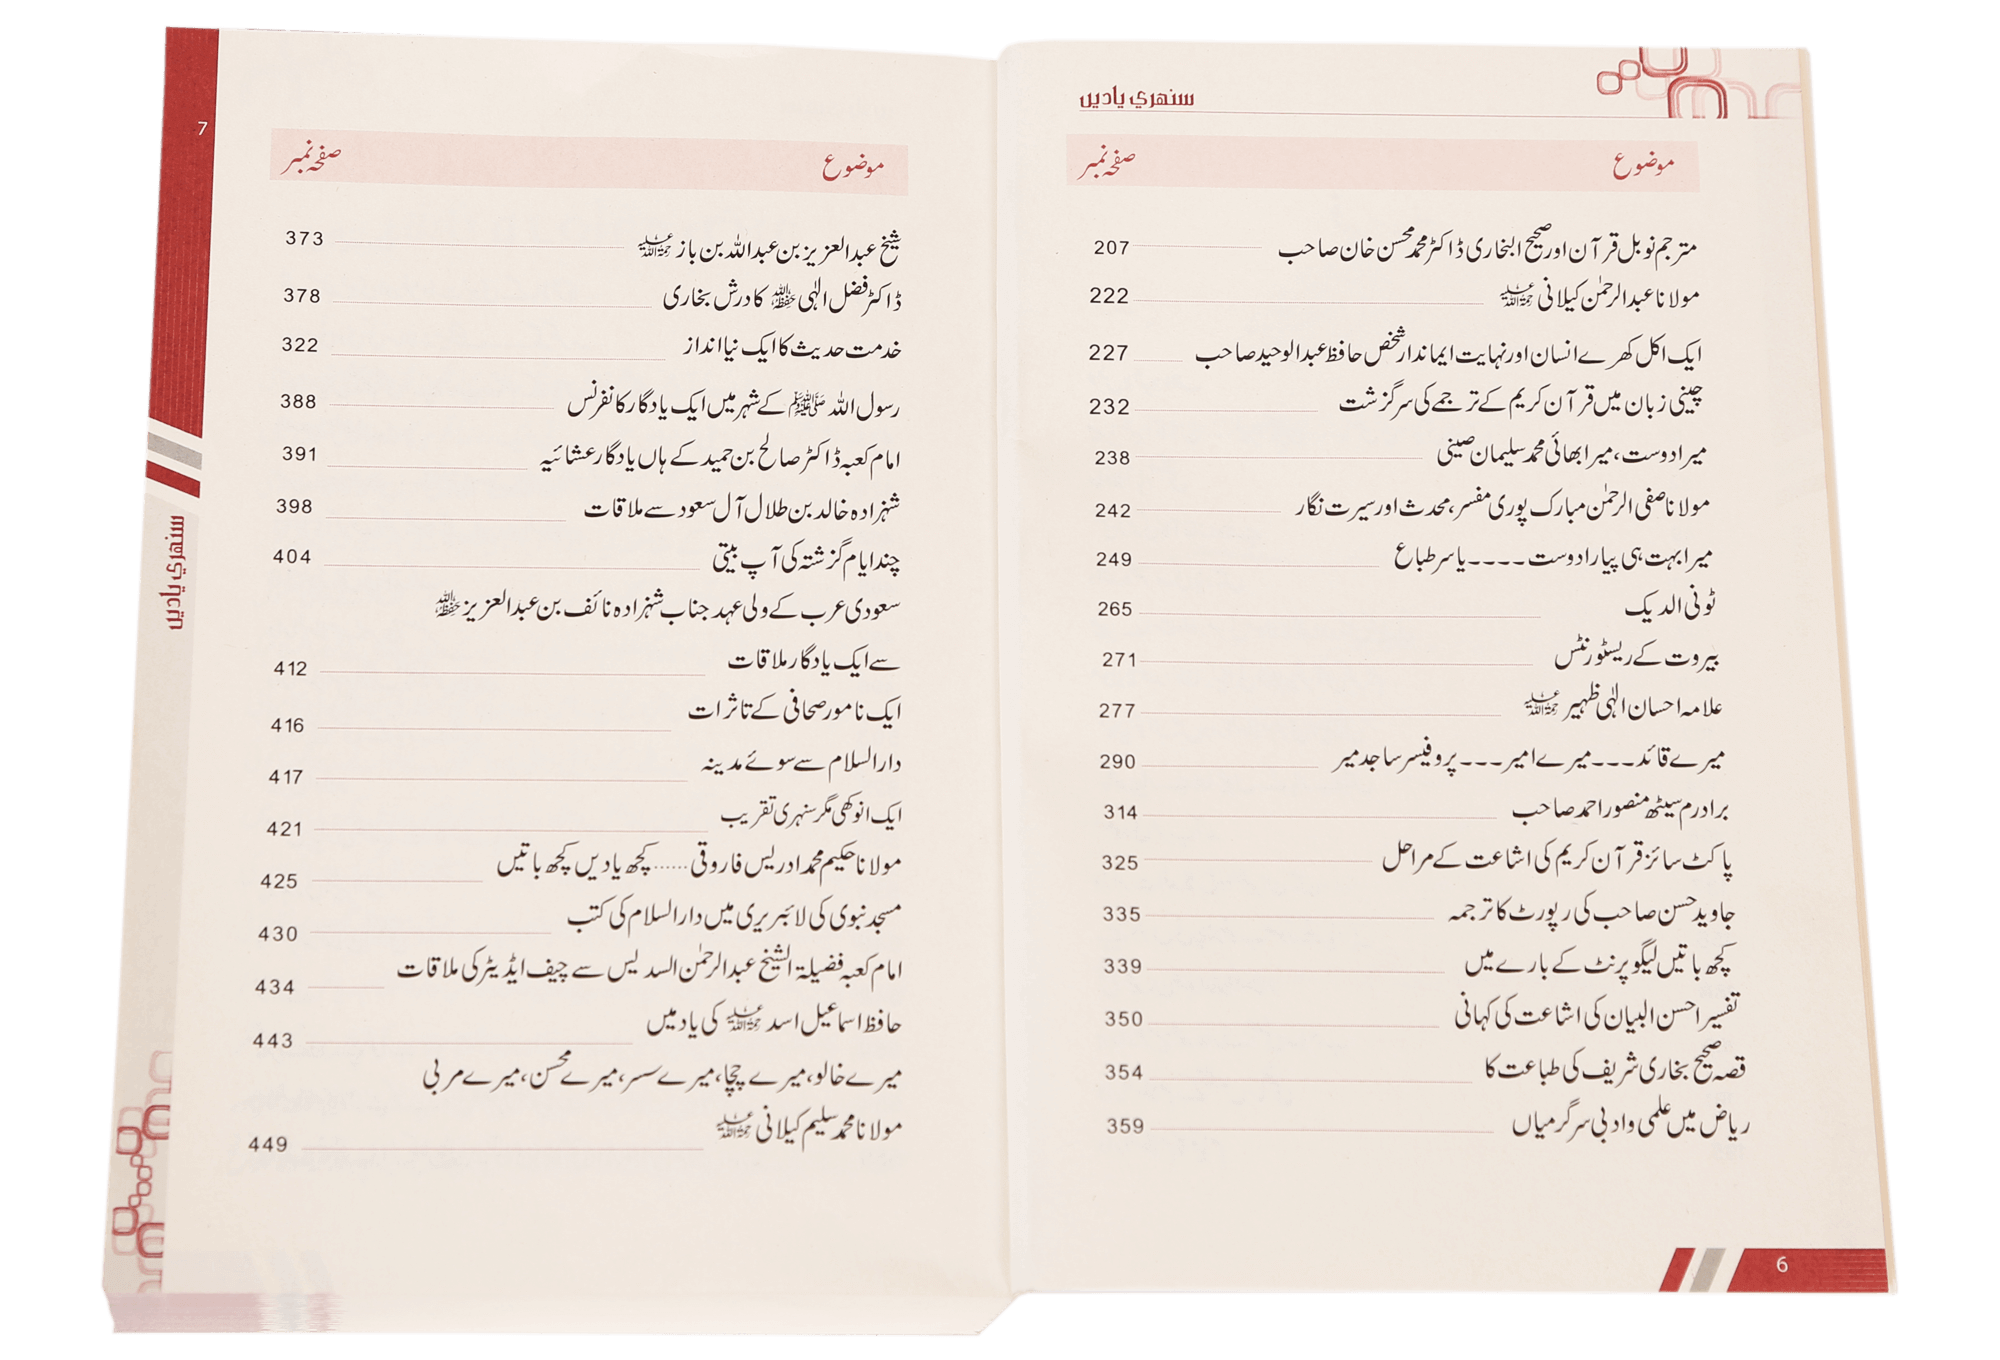 سنهري يادين
موضوع صفحہ نمبر
مترجم نوبل قرآن اور صحیح البخاری ڈاکٹر محمد محسن خان صاحب 207
مولانا عبدالرحمٰن کیلانی رحمۃ اللہ علیہ 222
ایک اکل کھرے انسان اور نہایت ایماندار شخص حافظ عبدالوحید صاحب 227
چینی زبان میں قرآن کریم کے ترجمے کی سرگزشت 232
میرا دوست، میرا بھائی محمد سلیمان صینی 238
مولانا صفی الرحمٰن مبارک پوری مفسر، محدث اور سیرت نگار 242
میرا بہت ہی پیارا دوست ---- یاسر طباع 249
ٹونی الدیک 265
بیروت کے ریسٹورنٹس 271
علامہ احسان الٰہی ظہیر رحمۃ اللہ علیہ 277
میرے قائد --- میرے امیر --- پروفیسر ساجد میر 290
برادرم سیٹھ منصور احمد صاحب 314
پاکٹ سائز قرآن کریم کی اشاعت کے مراحل 325
جاوید حسن صاحب کی رپورٹ کا ترجمہ 335
کچھ باتیں لیگو پرنٹ کے بارے میں 339
تفسیر احسن البیان کی اشاعت کی کہانی 350
قصہ صحیح بخاری شریف کی طباعت کا 354
ریاض میں علمی و ادبی سرگرمیاں 359
6
7
سنهري يادين
موضوع صفحہ نمبر
شیخ عبدالعزیز بن عبداللہ بن باز رحمۃ اللہ علیہ 373
ڈاکٹر فضل الٰہی حفظہ اللہ کا درس بخاری 378
خدمت حدیث کا ایک نیا انداز 322
رسول اللہ ﷺ کے شہر میں ایک یادگار کانفرنس 388
امام کعبہ ڈاکٹر صالح بن حمید کے ہاں یادگار عشائیہ 391
شہزادہ خالد بن طلال آل سعود سے ملاقات 398
چند ایام گزشتہ کی آپ بیتی 404
سعودی عرب کے ولی عہد جناب شہزادہ نائف بن عبدالعزیز حفظہ اللہ
سے ایک یادگار ملاقات 412
ایک نامور صحافی کے تاثرات 416
دارالسلام سے سوئے مدینہ 417
ایک انوکھی مگر سنہری تقریب 421
مولانا حکیم محمد ادریس فاروقی ...... کچھ یادیں کچھ باتیں 425
مسجد نبوی کی لائبریری میں دارالسلام کی کتب 430
امام کعبہ فضیلۃ الشیخ عبدالرحمٰن السدیس سے چیف ایڈیٹر کی ملاقات 434
حافظ اسماعیل اسد رحمۃ اللہ علیہ کی یاد میں 443
میرے خالو، میرے چچا، میرے سسر، میرے محسن، میرے مربی
مولانا محمد سلیم کیلانی رحمۃ اللہ علیہ 449